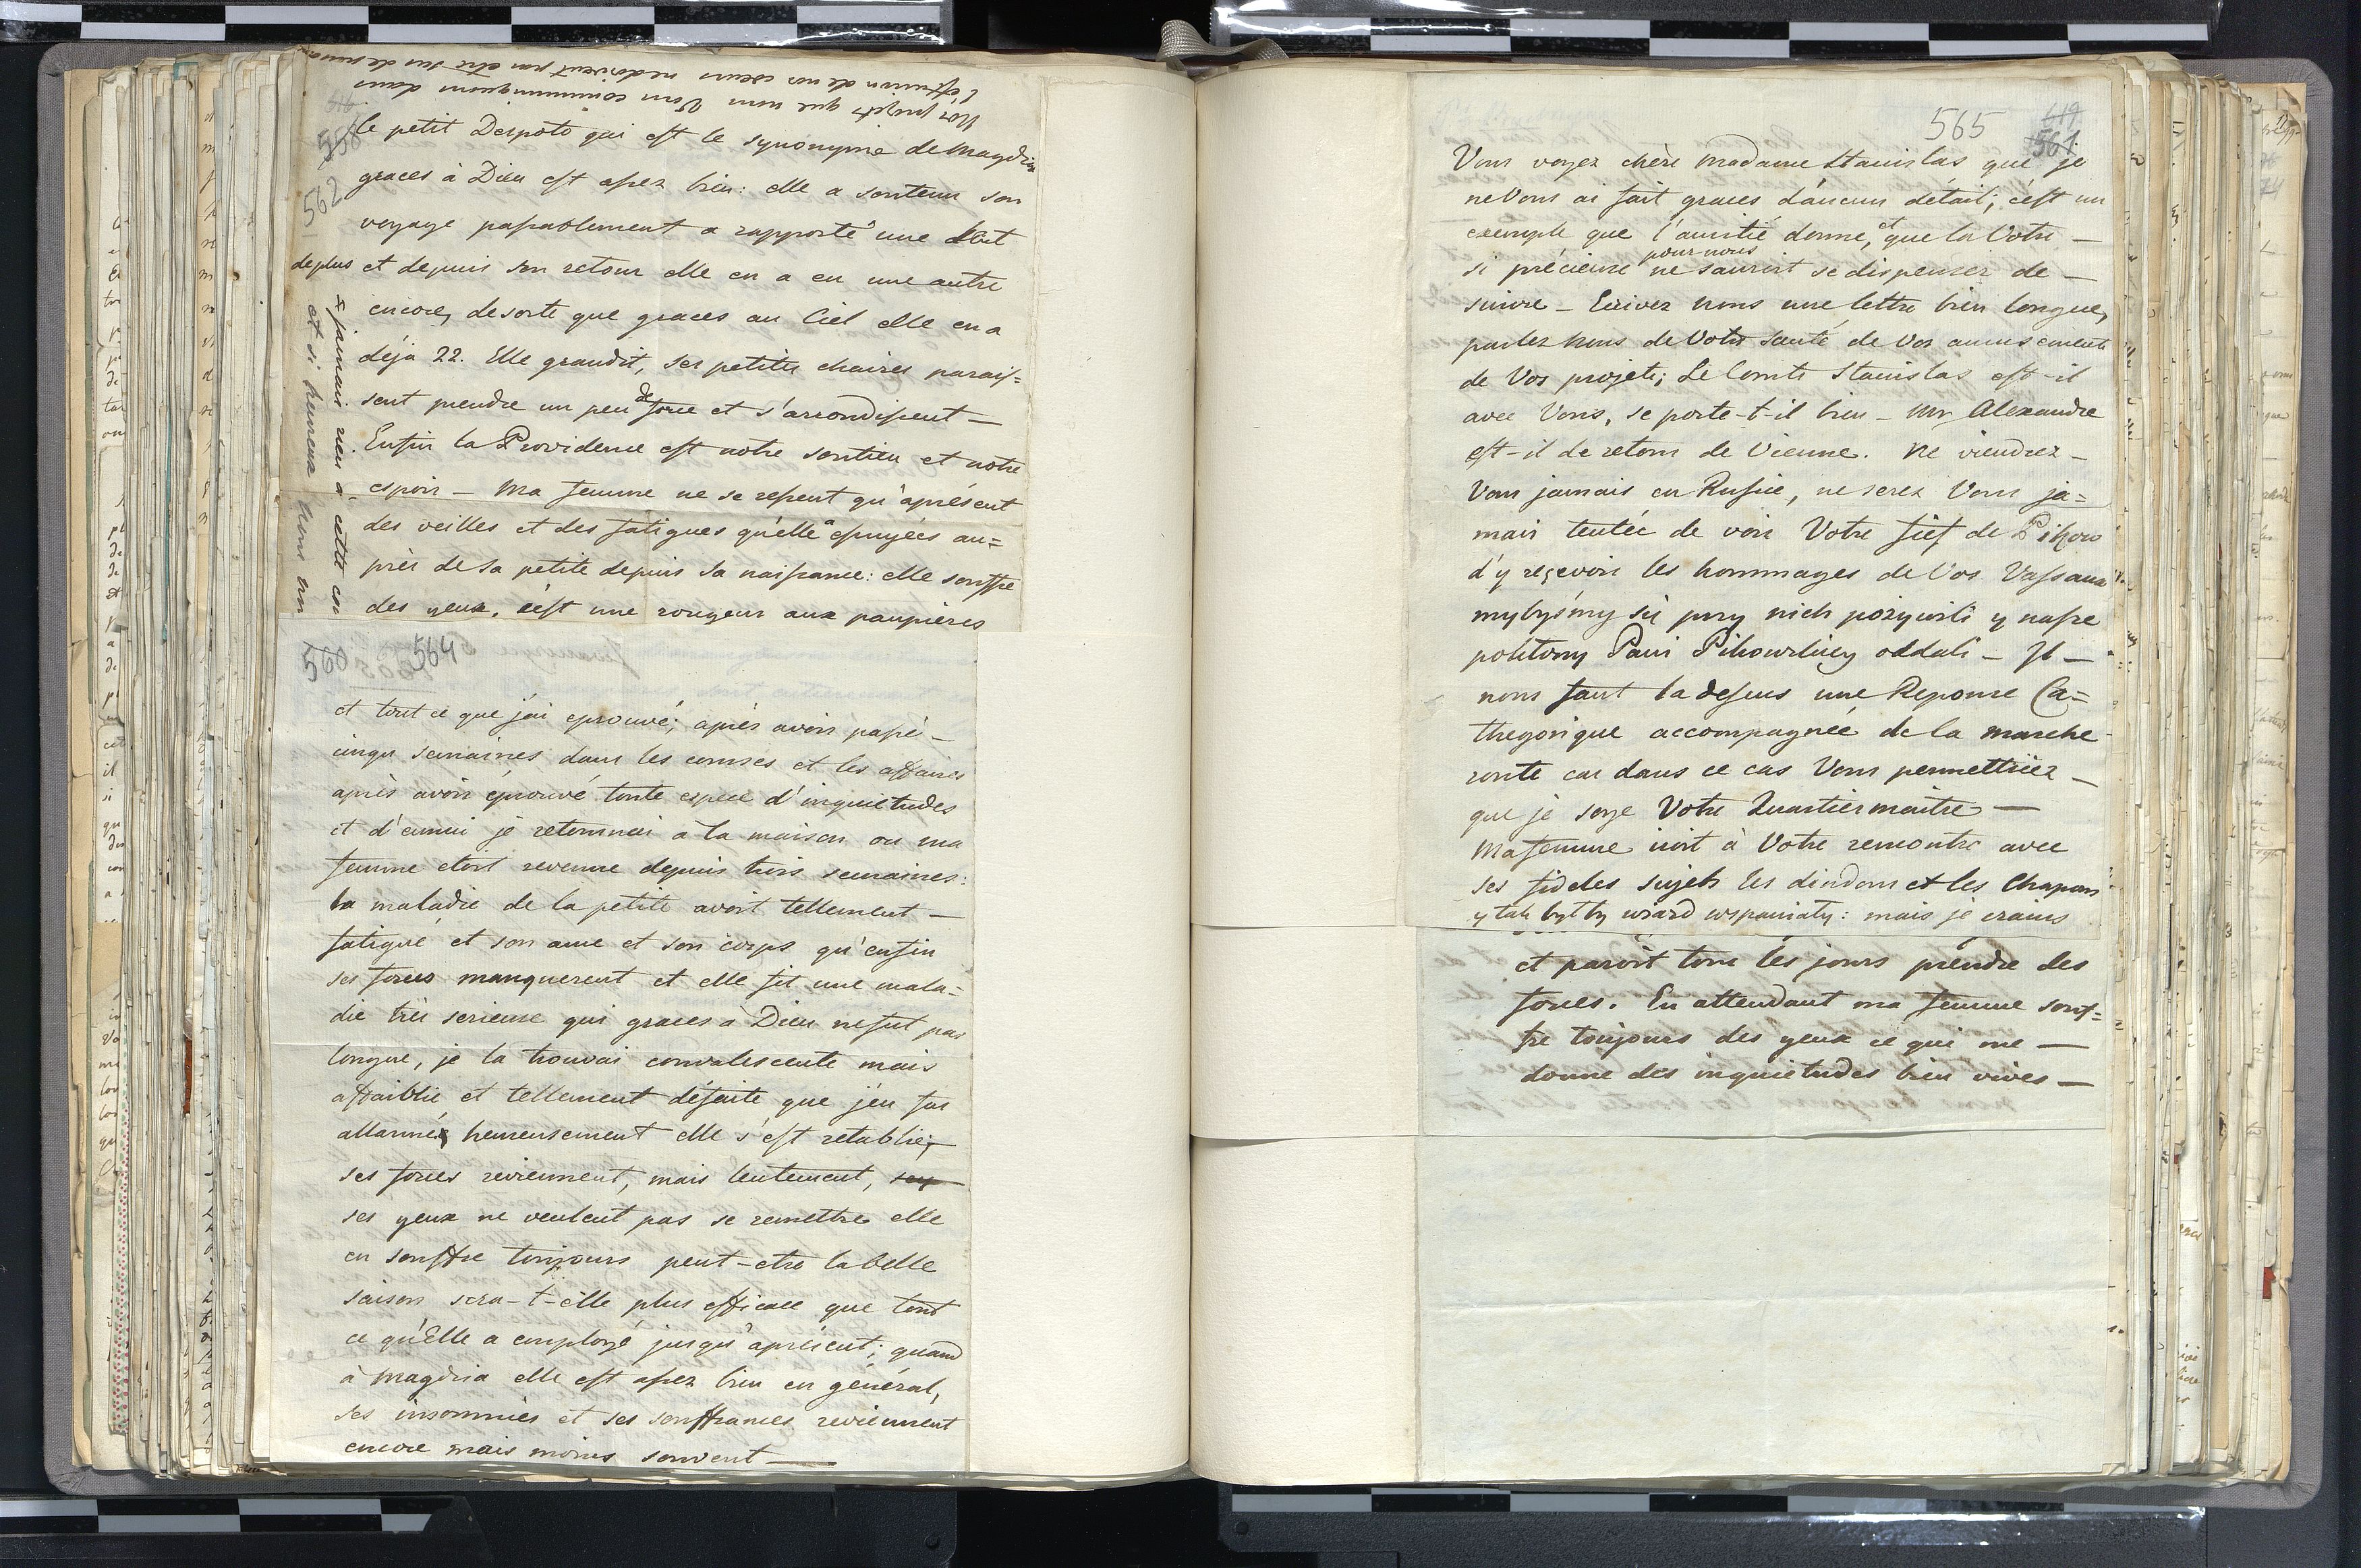 Nos projets que nous Vous communiquons dans
l'effusion de nos coeurs ne doivent pas etre
616
558
562
le petit Despote qui est le synonyme de Magdusia
graces à Dieu est assez bien: elle a soutenu son
voyage passablement a rapporté une dent
de plus et depuis son retour elle en a eu une autre
encore, desorte que graces au Ciel elle en a
déja 22. Elle grandit, ses petites chaires parais=
sent prendre un peu de force et s'arrondissent —
Enfin la Providence est notre soutien et notre
espoir — Ma femme ne se resent qu'aprésent
des veilles et des fatigues qu'elle a essuyées au=
près de sa petite depuis sa naissance: elle souffre
des yeux, c'est une rougeur aux paupières
x jamais rien à cette
et si heureux
560 564
et tout ce que j'ai eprouvé; après avoir passé —
cinqu semaines dans les courses et les affaires
après avoir éprouvé toute espece d'inquietudes
et d'ennui je retournai a la maison ou ma
femme etoit revenue depuis trois semaines:
la maladie de la petite avoit tellement —
fatigué et son ame et son corps qu'enfin
ses forces manquerent et elle fit une mala=
die très serieuse qui graces à Dieu ne fut pas
longue, je la trouvai convalescente mais
affaiblie et tellement défaite que j'en fus
allarmé, heureusement elle s'est retablie;
ses forces reviennent, mais lentement, sey
ses yeux ne veulent pas se remettre elle
en souffre toujours peut-etre la belle
saison sera-t-elle plus efficace que tout
ce qu'Elle a employé jusqu'apresent; quand
à Magdusia elle est assez bien en général,
ses insomnies et ses souffrances reviennent
encore mais moins souvent —
565 619
561
Vous voyez chère Madame Stanislas que je
ne Vous ai fait graces d'aucun détail; c'est un
exemple que l'amitié donne, et que la Votre —
si précieuse pour nous ne sauroit se dispenser de —
suivre — Ecrivez nous une lettre bien longue,
parlez nous de Votre santé de Vos amusements
de Vos projets; Le Comte Stanislas est-il
avec Vous, se porte-t-il bien — Mr Alexandre
est-il de retour de Vienne. Ne viendrez —
Vous jamais en Russie, ne serez Vous ja=
mais tentée de voir Votre fief de Pikow
d'y reçevoir les hommages de Vos Vassaux
mybyśmy się przy nich pożywili y nasze
pokłony Pani Pikowskiey oddali — Il —
nous faut la dessus une Reponse Ca=
thegorique accompagnée de la marche
route car dans ce cas Vous permettriez —
que je soye Votre Quartiermaitre —
Ma femme iroit à Votre rencontre avec
ses fideles sujets les dindons et les Chapons
y tak byłby wiazd wspaniały: mais je crains
et paroit tous les jours prendre des
forces. En attendant ma femme souf=
fre toujours des yeux ce qui me —
donne des inquietudes bien vives —